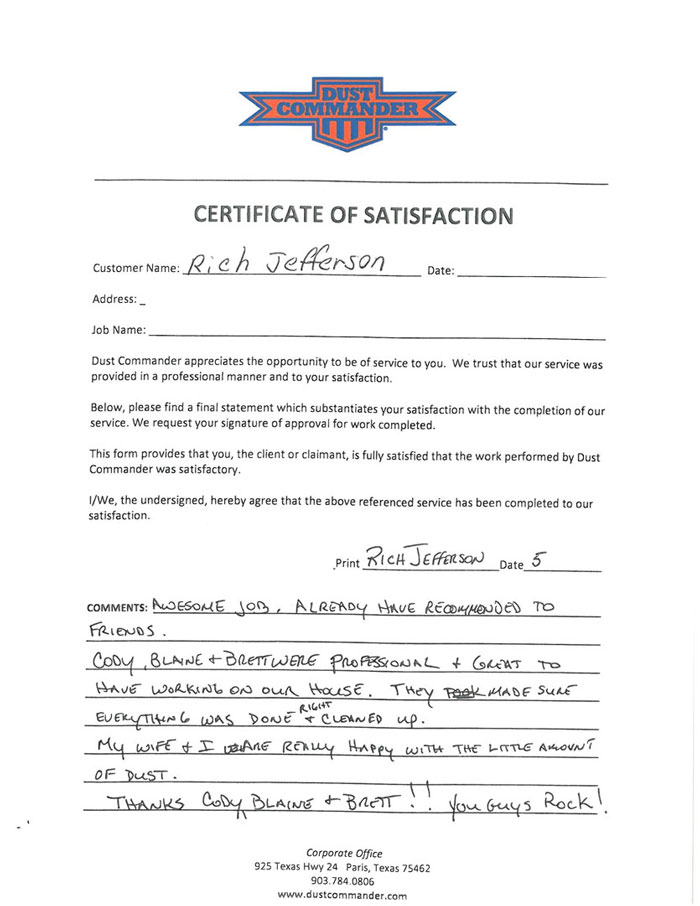 DUST
COMMANDER
CERTIFICATE OF SATISFACTION
Customer Name: Rich Jefferson Date:
Address: _
Job Name:
Dust Commander appreciates the opportunity to be of service to you. We trust that our service was
provided in a professional manner and to your satisfaction.
Below, please find a final statement which substantiates your satisfaction with the completion of our
service. We request your signature of approval for work completed.
This form provides that you, the client or claimant, is fully satisfied that the work performed by Dust
Commander was satisfactory.
I/We, the undersigned, hereby agree that the above referenced service has been completed to our
satisfaction.
Print RICH JEFFERSON Date 5
COMMENTS: AWESOME JOB. ALREADY HAVE RECOMMENDED TO
FRIENDS.
CODY, BLAINE + BRETT WERE PROFESSIONAL + GREAT TO
HAVE WORKING ON OUR HOUSE. THEY MADE SURE
EVERYTHING WAS DONE RIGHT + CLEANED UP.
MY WIFE + I ARE REALLY HAPPY WITH THE LITTLE AMOUNT
OF DUST.
THANKS CODY, BLAINE + BRETT!! YOU GUYS ROCK!
Corporate Office
925 Texas Hwy 24 Paris, Texas 75462
903.784.0806
www.dustcommander.com